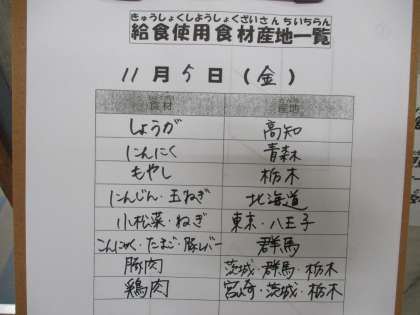 きゅうしょくしようしょくざいさんちいちらん
給食使用食材産地一覧
11月5日(金)
食材 産地
しょうが 高知
にんにく 青森
もやし 栃木
にんじん・玉ねぎ 北海道
小松菜・ねぎ 東京・八王子
こんにゃく・たまご・豚レバー 群馬
豚肉 茨城・群馬・栃木
鶏肉 宮崎・茨城・栃木